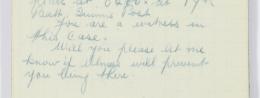 at
You are a witness in
this case.
Will you please let me
know if illness will prevent
you being there.